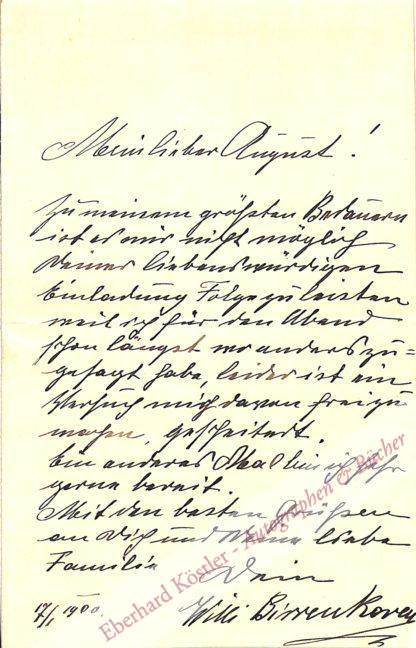 Mein lieber August!
Zu meinem größten Bedauern
ist es mir nicht möglich
Deiner liebenswürdigen
Einladung Folge zu leisten
weil ich für den Abend
schon längst wo anders zu-
gesagt habe, leider ist ein
Versuch mich davon frei zu
machen, gescheitert.
Ein anderes Mal bin ich sehr
gerne bereit.
Mit den besten Grüßen
an Dich und Deine liebe
Familie Dein
17/I 1900. Willi Birrenkoven
Eberhard Köstler - Autographen & Bücher